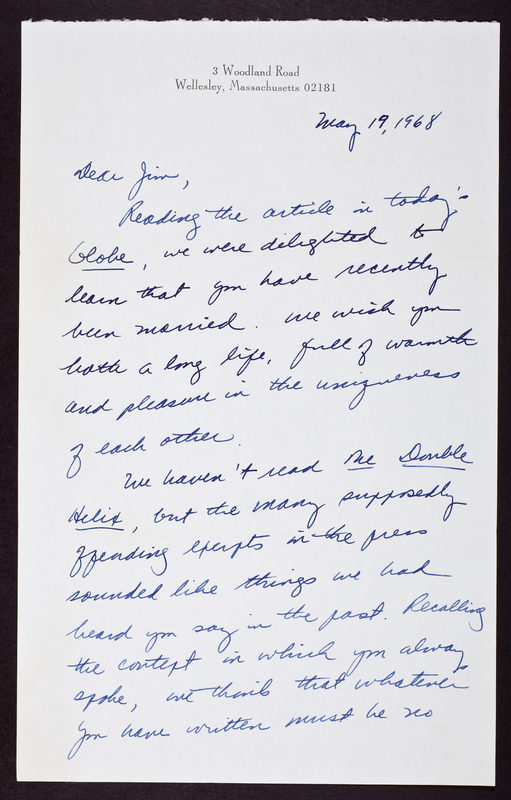 3 Woodland Road
Wellesley, Massachusetts 02181
May 19, 1968
Dear Jim,
Reading the article in today's
Globe, we were delighted to
learn that you have recently
been married. We wish you
both a long life, full of warmth
and pleasure in the uniqueness
of each other.
We haven't read The Double
Helix, but the many supposedly
offending exerpts in the press
sounded like things we had
heard you say in the past. Recalling
the context in which you always
spoke, we think that whatever
you have written must be no